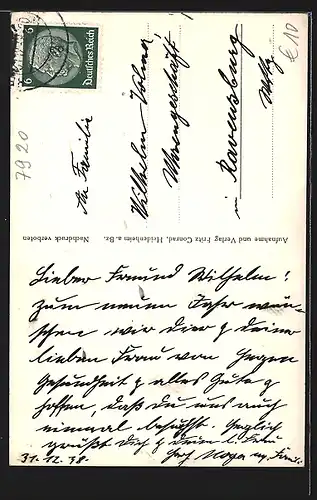 6 6
Deutsches Reich
€10
7920
An Familie
Wilhelm
Uhrengeschäft
in Ravensburg
Wttbg
Aufnahme und Verlag Fritz Conrad, Heidenheim a. Brz.
Nachdruck verboten
Lieber Freund Wilhelm!
Zum neuen Jahr wün-
schen wir Dir & Deiner
lieben Frau von Herzen
Gesundheit & alles Gute &
hoffen, daß Du uns auch
einmal besuchst. Herzlich
grüßt Dich & Deine l. Frau
31.12.38.